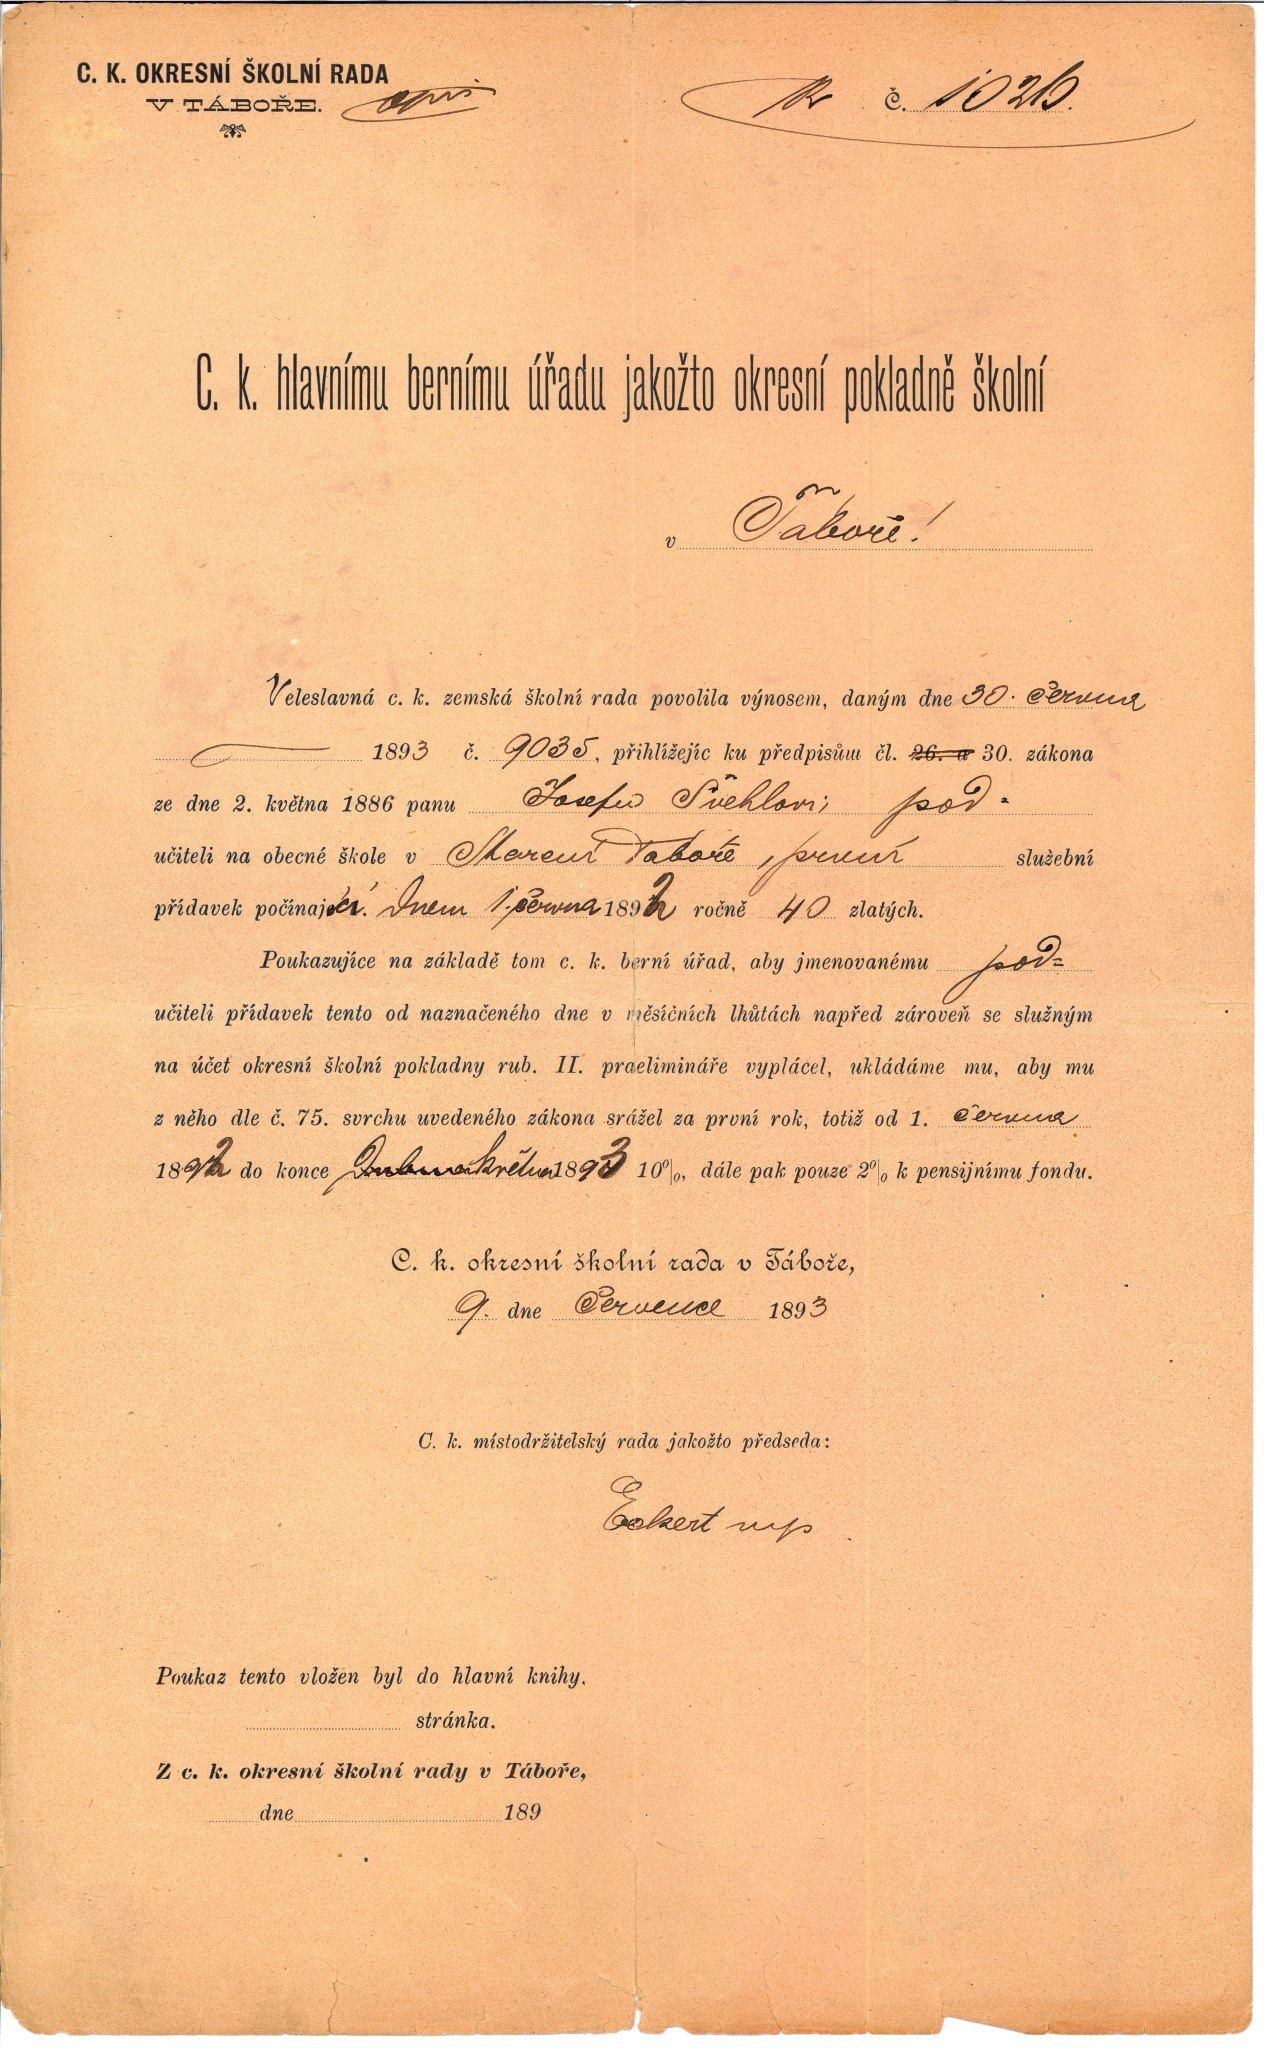 C. K. OKRESNÍ ŠKOLNÍ RADA
V TÁBOŘE.
opis
č. 1026.
C. k. hlavnímu bernímu úřadu jakožto okresní pokladně školní
v Táboře!
Veleslavná c. k. zemská školní rada povolila výnosem, daným dne 30. června
1893 č. 9035, přihlížejíc ku předpisům čl. 26. a 30. zákona
ze dne 2. května 1886 panu Josefu Švehlovi, pod-
učiteli na obecné škole v Táboře, první služební
přídavek počínající dnem 1. června 1892 ročně 40 zlatých.
Poukazujíce na základě tom c. k. berní úřad, aby jmenovanému pod=
učiteli přídavek tento od naznačeného dne v měsíčních lhůtách napřed zároveň se služným
na účet okresní školní pokladny rub. II. praelimináře vyplácel, ukládáme mu, aby mu
z něho dle č. 75. svrchu uvedeného zákona srážel za první rok, totiž od 1. června
1892 do konce Dubna května 1893 10%, dále pak pouze 2% k pensijnímu fondu.
C. k. okresní školní rada v Táboře,
9. dne července 1893
C. k. místodržitelský rada jakožto předseda:
Eckert mp
Poukaz tento vložen byl do hlavní knihy.
stránka.
Z c. k. okresní školní rady v Táboře,
dne 189